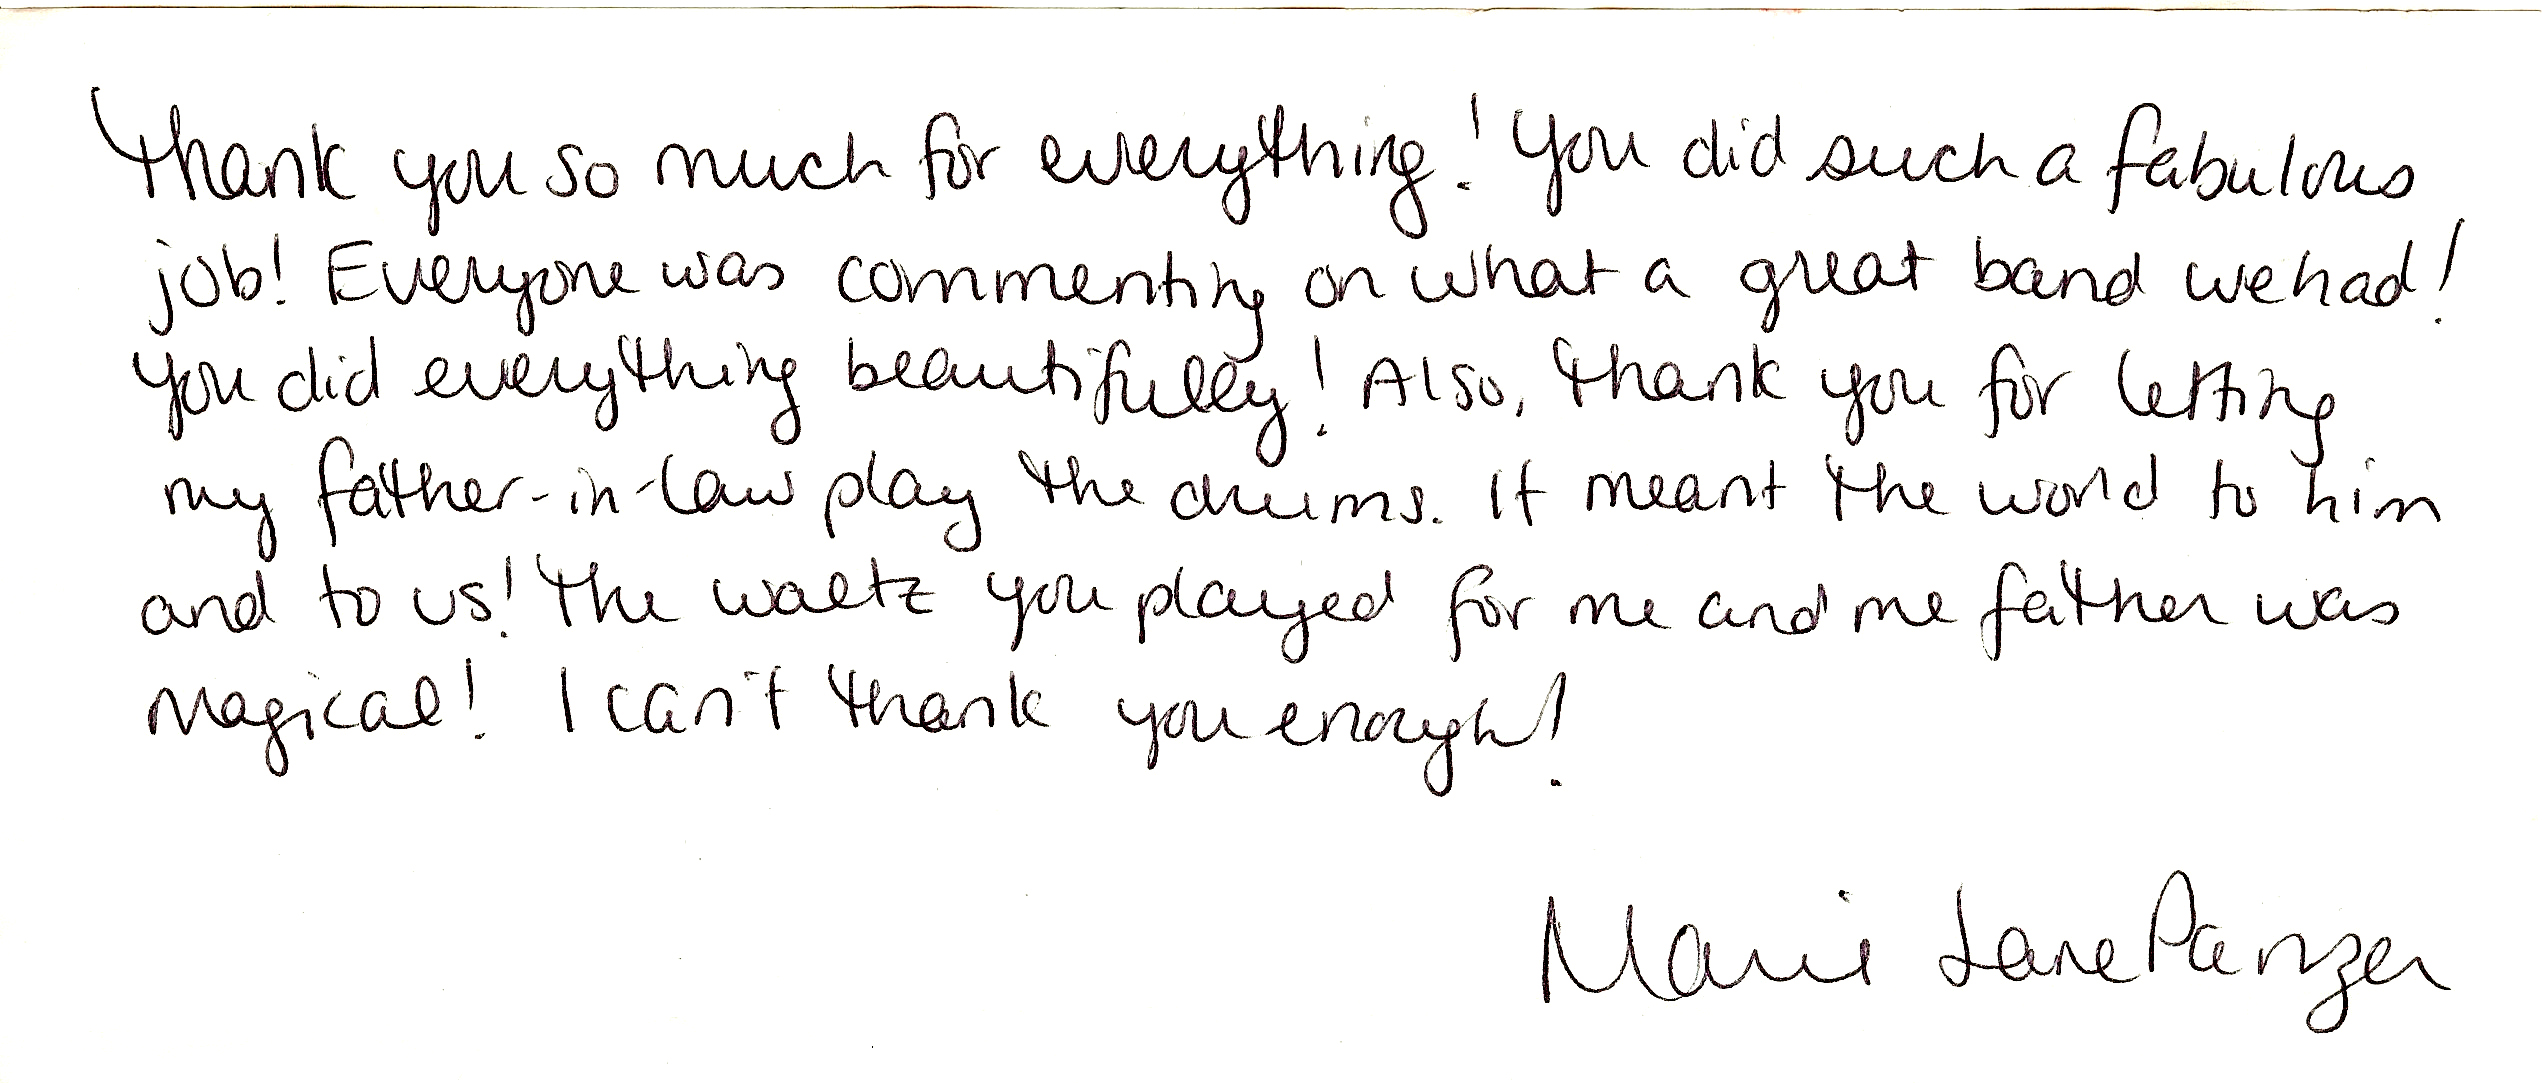 Thank you so much for everything! You did such a fabulous
job! Everyone was commenting on what a great band we had!
You did everything beautifully! Also, thank you for letting
my father-in-law play the drums. It meant the world to him
and to us! The waltz you played for me and me father was
magical! I can't thank you enough!
Marie Lane Panzer